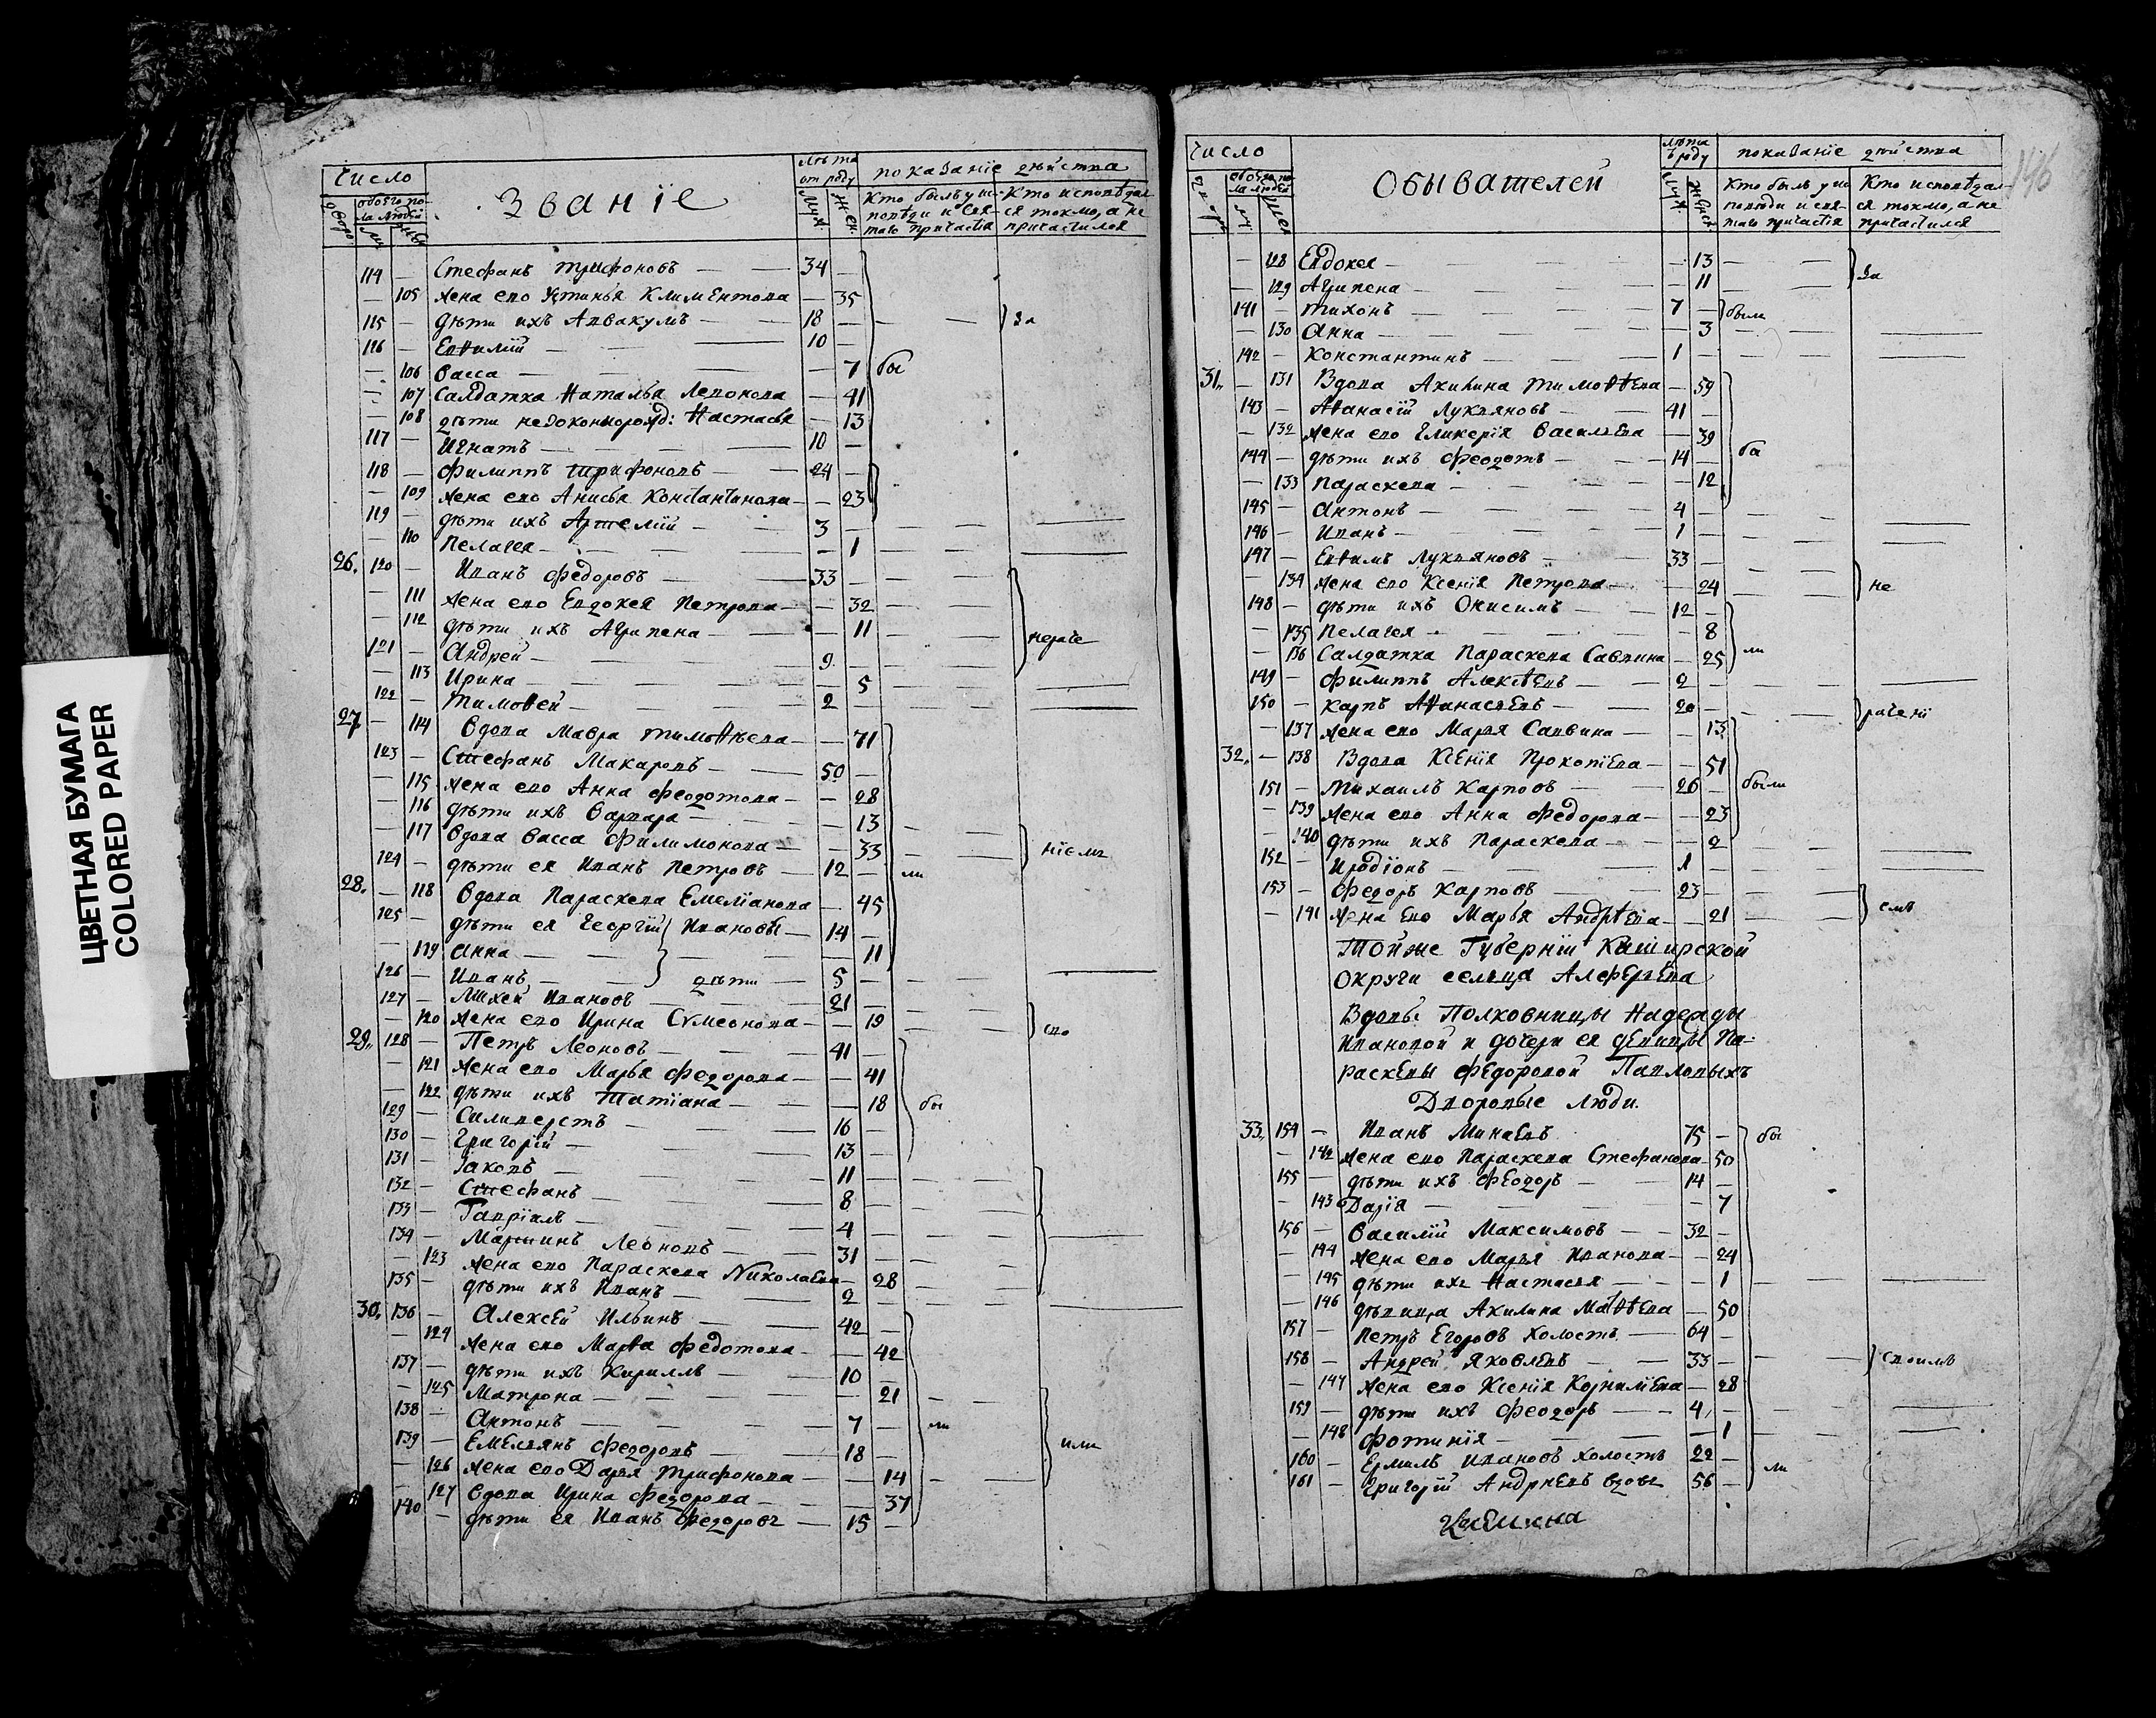 ЦВЕТНАЯ БУМАГА
COLORED PAPER
Число Званіе лѣта от роду показаніе дѣйства
дворо обоего пола людей муж. жен. Кто былъ у исповѣди и святаго причастія Кто исповѣдался токмо, а не причастился
114 — Стефанъ Трифоновъ — 34 —
— 105 жена его Устинья Климентова — 35
115 — дѣти ихъ Аввакумъ — 18 — за
116 — Евѳимій — 10 —
— 106 Васса — 7 бы
— 107 Салдатка Наталья Левонова — 41
— 108 дѣти Настасья — 13
117 — Игнатъ — 10 —
118 — Филиппъ Трифоновъ — 24 —
— 109 жена его Анисья Константинова — 23
119 — дѣти ихъ Артемій — 3 —
— 110 Пелагея — 1
26. 120 — Иванъ Федоровъ — 33 —
— 111 жена его Евдокея Петрова — 32
— 112 дѣти ихъ Агрипена — 11 нераче
121 — Андрей — 9 —
— 113 Ирина — 5
122 — Тимоѳей — 2 —
27. — 114 Вдова Мавра Тимоѳѣева — 71
123 — Стефанъ Макаровъ — 50 —
— 115 жена его Анна Феодотова — 28
— 116 дѣти ихъ Варвара — 13
— 117 Вдова Васса Филимонова — 33 ніемъ
124 — дѣти ея Иванъ Петровъ — 12 — ли
28. — 118 Вдова Параскева Емеліанова — 45
125 — дѣти ея Георгій Ивановы — 14 —
— 119 Анна — 11
126 — Иванъ дѣти — 5 —
127 — Михей Ивановъ — 21 —
— 120 жена его Ирина Сѵмеонова — 19 сво
29. 128 — Петръ Леоновъ — 41 —
— 121 жена его Марья Федорова — 41
— 122 дѣти ихъ Татіана — 18 бы
129 — Силиверстъ — 16 —
130 — Григорій — 13 —
131 — Іаковъ — 11 —
132 — Стефанъ — 8 —
133 — Гавріилъ — 4 —
134 — Мартинъ Леоновъ — 31 —
— 123 жена его Параскева Николаева — 28
135 — дѣти ихъ Иванъ — 2 —
30. 136 — Алексей Ильинъ — 42 —
— 124 жена его Марѳа Федотова — 42
137 — дѣти ихъ Кириллъ — 10 —
— 125 Матрона — 21
138 — Антонъ — 7 — ли
139 — Емельянъ Федоровъ — 18 — или
— 126 жена его Дарья Трифонова — 14
— 127 Вдова Ирина Федорова — 37
140 — дѣти ея Иванъ Федоровъ — 15 —
146
Число Обывателей лѣта ъ роду показаніе дѣйства
обоего пола людей муж. Кто былъ у исповѣди и святаго причастія Кто исповѣдался токмо, а не причастился
— 128 Евдокея — 13
— 129 Агрипена — 11 за
141 — Тихонъ — 7 — были
— 130 Анна — 3
142 — Константинъ — 1 —
31. — 131 Вдова Акилина Тимоѳѣева — 59
143 — Аѳанасій Лукьяновъ — 41 —
— 132 жена его Гликерія Васильева — 39
144 — дѣти ихъ Феодотъ — 14 — бы
— 133 Параскева — 12
145 — Антонъ — 4 —
146 — Иванъ — 1 —
147 — Евѳимъ Лукьяновъ — 33 —
— 134 жена его Ксенія Петрова — 24 не
148 — дѣти ихъ Онисимъ — 12 —
— 135 Пелагея — 8
— 136 Салдатка Параскева Саввина — 25 ли
149 — Филиппъ Алексѣевъ — 2 —
150 — Карпъ Аѳанасьевъ — 20 — рачені
— 137 жена его Марья Саввина — 13
32. — 138 Вдова Ксенія Прокопіева — 51
151 — Михаилъ Карповъ — 26 — были
— 139 жена его Анна Федорова — 23
— 140 дѣти ихъ Параскева — 2
152 — Иродіонъ — 1 —
153 — Федоръ Карповъ — 23 —
— 141 жена его Марья Андрѣева — 21 емъ
Тойже Губерніи Каширской
округи сельца Алферьева
Вдовы Полковницы Надежды
Ивановой и дочери ея девицы Па-
раскевы Федоровой Павловыхъ
Дворовые люди.
33. 154 — Иванъ Минаевъ 75 — бы
— 142 жена его Параскева Стефанова — 50
155 — дѣти ихъ Феодоръ — 14 —
— 143 Дарія — 7
156 — Василій Максимовъ — 32 —
— 144 жена его Марья Иванова — 24
— 145 дѣти ихъ Настасья — 1
— 146 дѣвица Акилина Матѳѣева — 50
157 — Петръ Егоровъ холостъ — 64 —
158 — Андрей Яковлевъ — 33 — своимъ
— 147 жена его Ксенія Корниліева — 28
159 — дѣти ихъ Феодоръ — 4 —
— 148 Фотинія — 1
160 — Ермилъ Ивановъ холостъ 22 —
161 — Григорій Андрѣевъ вдовъ 56 — ли